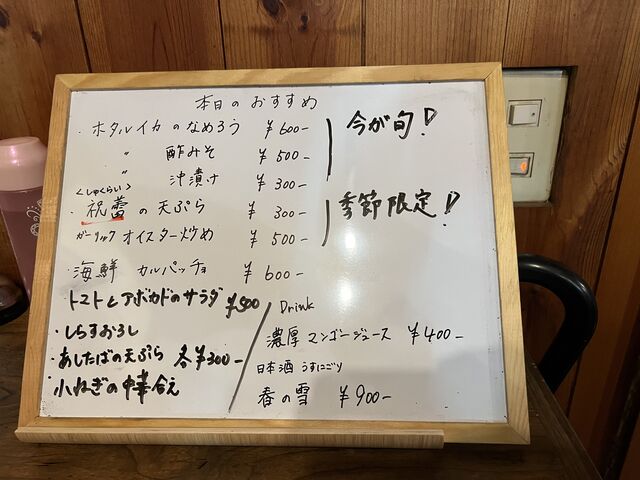 本日のおすすめ
・ホタルイカのなめろう ¥600-
〃 酢みそ ¥500-
〃 沖漬け ¥300-
今が旬!
<しゅくらい>
・祝蕾の天ぷら ¥300-
ガーリックオイスター炒め ¥500-
季節限定!
・海鮮カルパッチョ ¥600-
トマトとアボカドのサラダ ¥500
・しらすおろし
・あしたばの天ぷら 各¥300-
・小ねぎの中華合え
Drink
濃厚マンゴージュース ¥400-
日本酒 うすにごり
春の雪 ¥900-